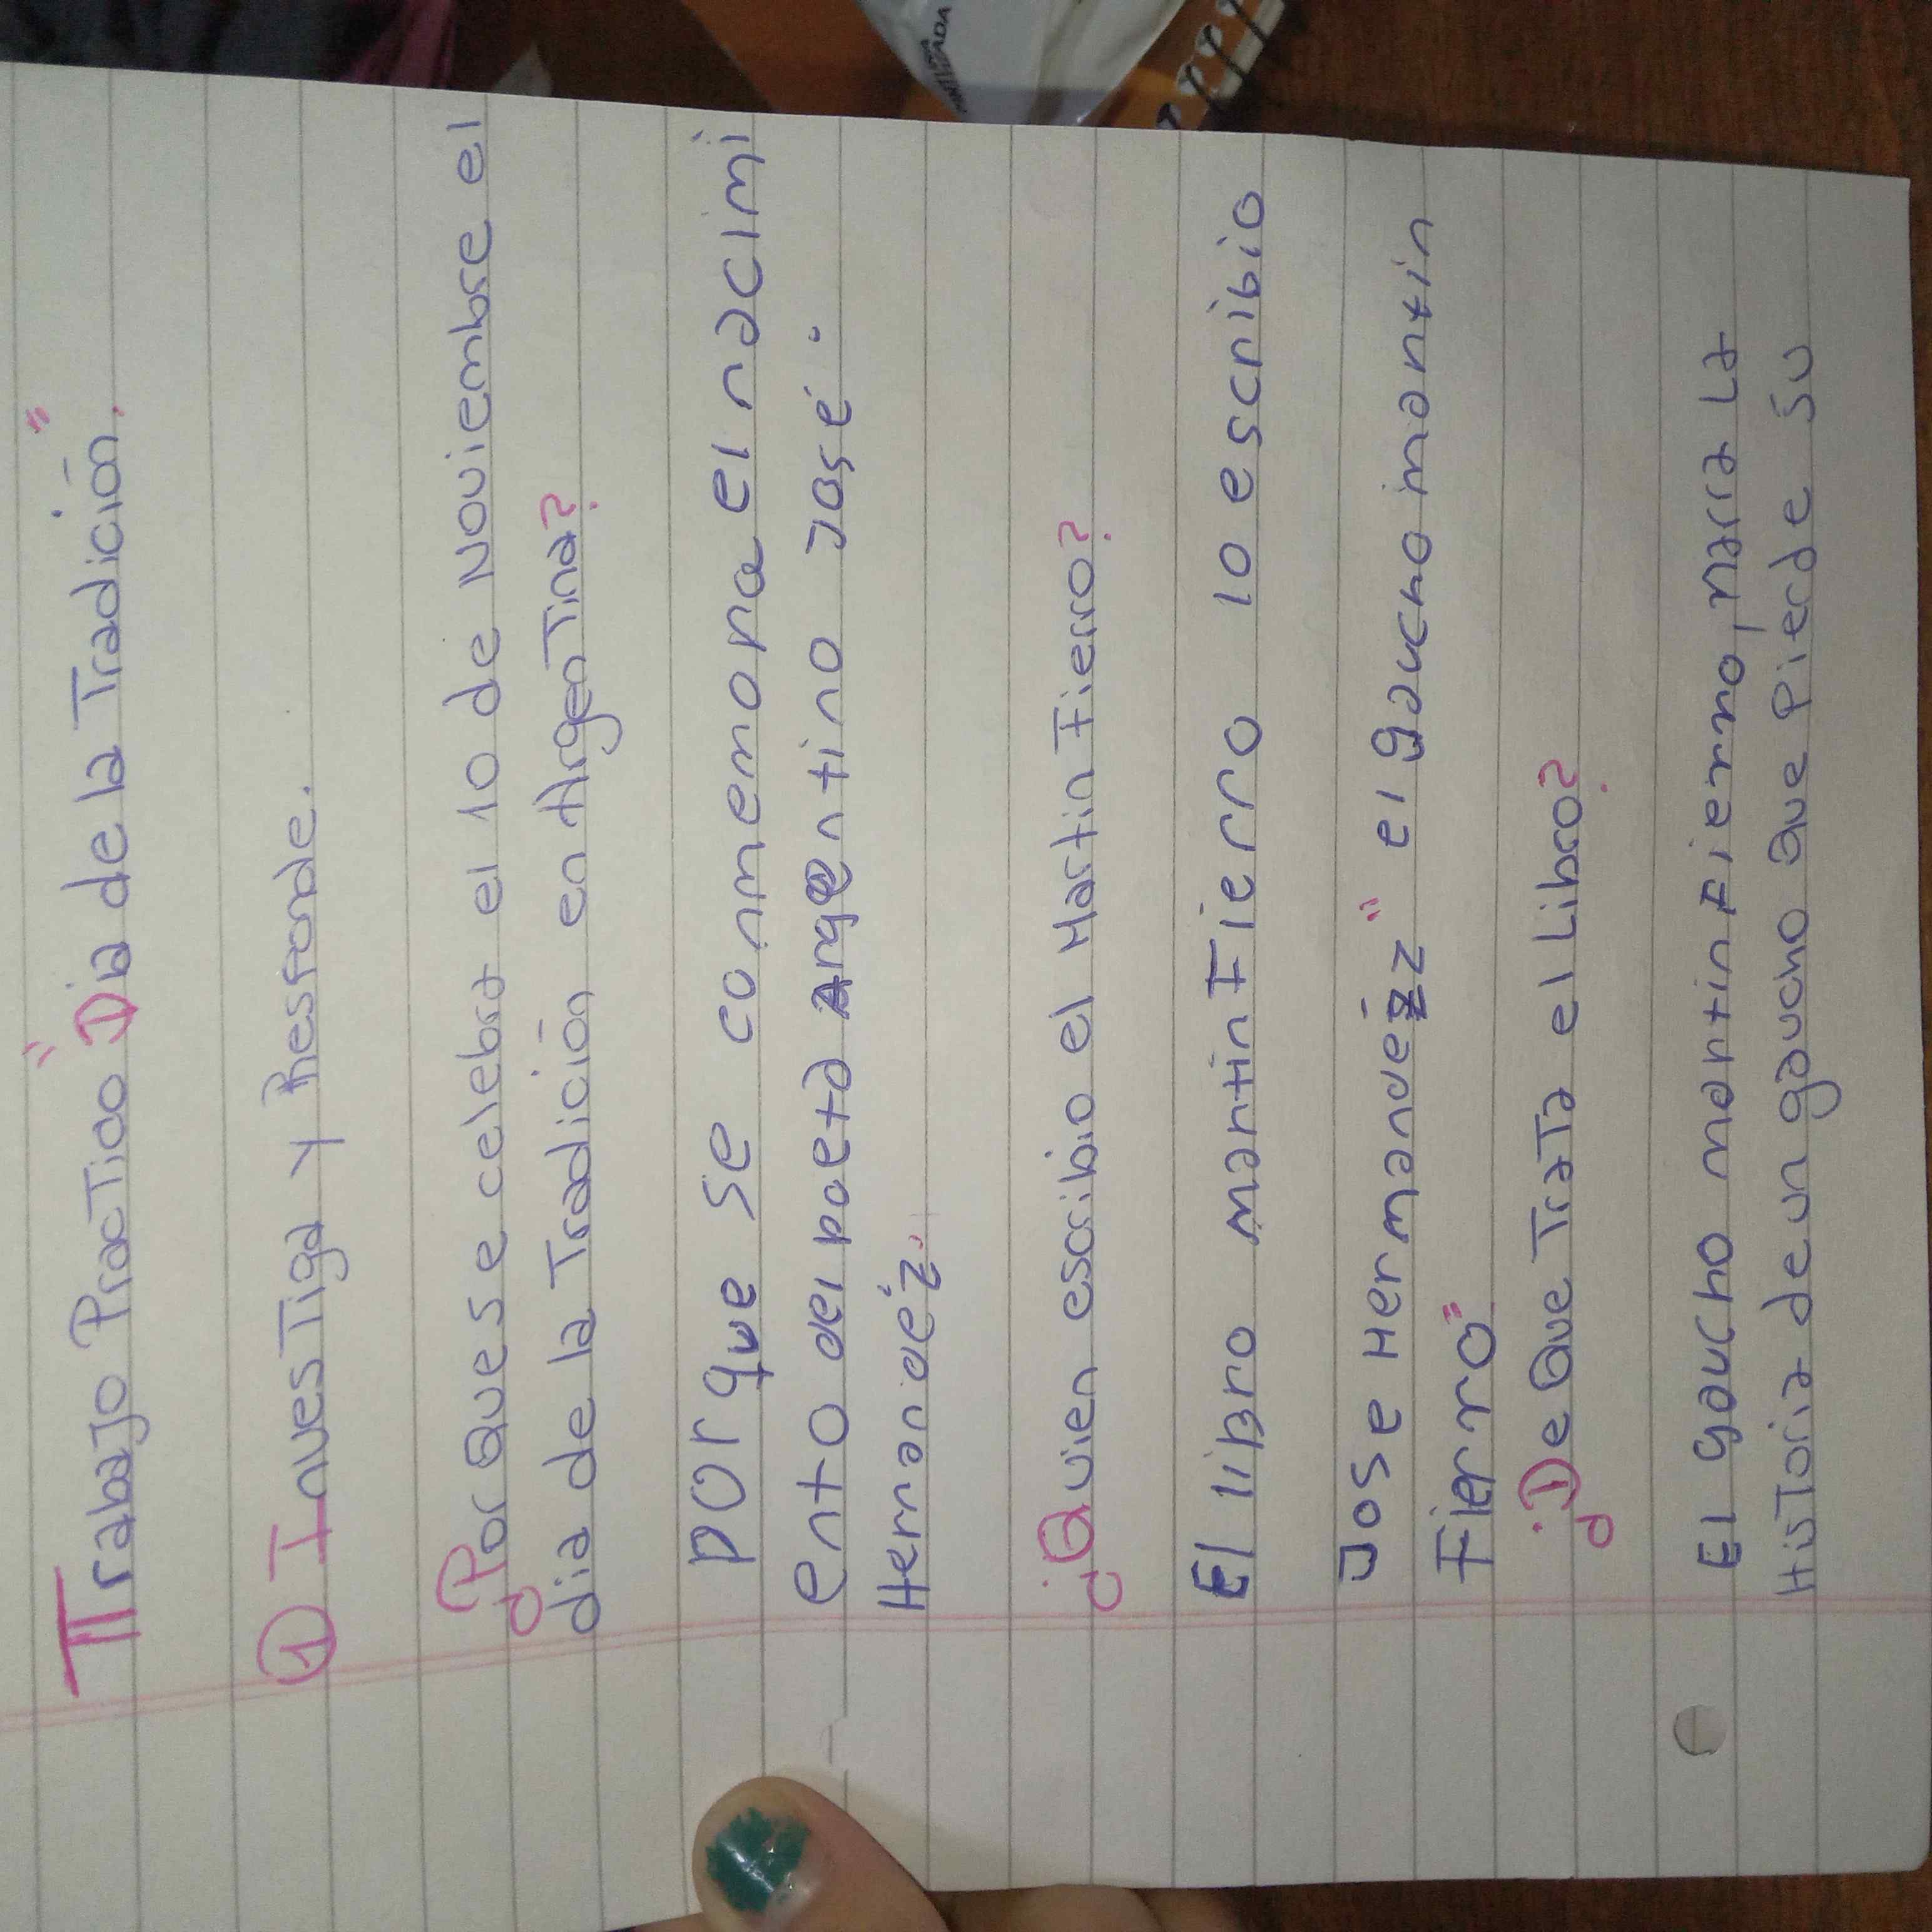 Trabajo Practico "Dia de la Tradición".
① Investiga y Responde.
¿Por que se celebra el 10 de Noviembre el
dia de la Tradición en Argentina?
porque se conmemora el nacimi
ento del poeta argentino José.
Hernandéz.
¿Quien escribio el Martin Fierro?
El libro martin Fierro lo escribio
Jose Hernandéz "el gaucho martin
Fierro"
¿De Que Trata el Libro?
El gaucho martin Fierro, narra la
Historia de un gaucho que Pierde su